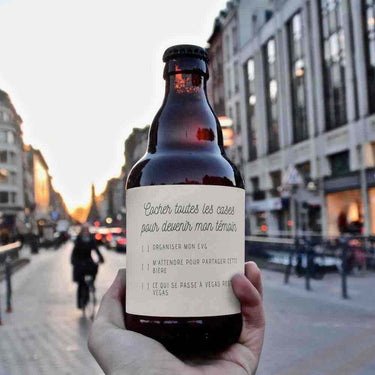 Cocher toutes les cases
pour devenir mon témoin
[ ] ORGANISER MON EVG
[ ] M'ATTENDRE POUR PARTAGER CETTE
BIÈRE
[ ] CE QUI SE PASSE À VEGAS
VEGAS